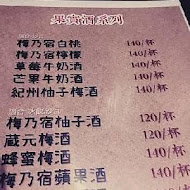 果實酒系列
梅乃宿白桃 140/杯
梅乃宿檸檬 140/杯
草莓牛奶酒 140/杯
芒果牛奶酒 140/杯
紀州柚子梅酒 140/杯
梅乃宿柚子酒 120/杯
蔵元梅酒 120/杯
蜂蜜梅酒 140/杯
梅乃宿蘋果酒 140/